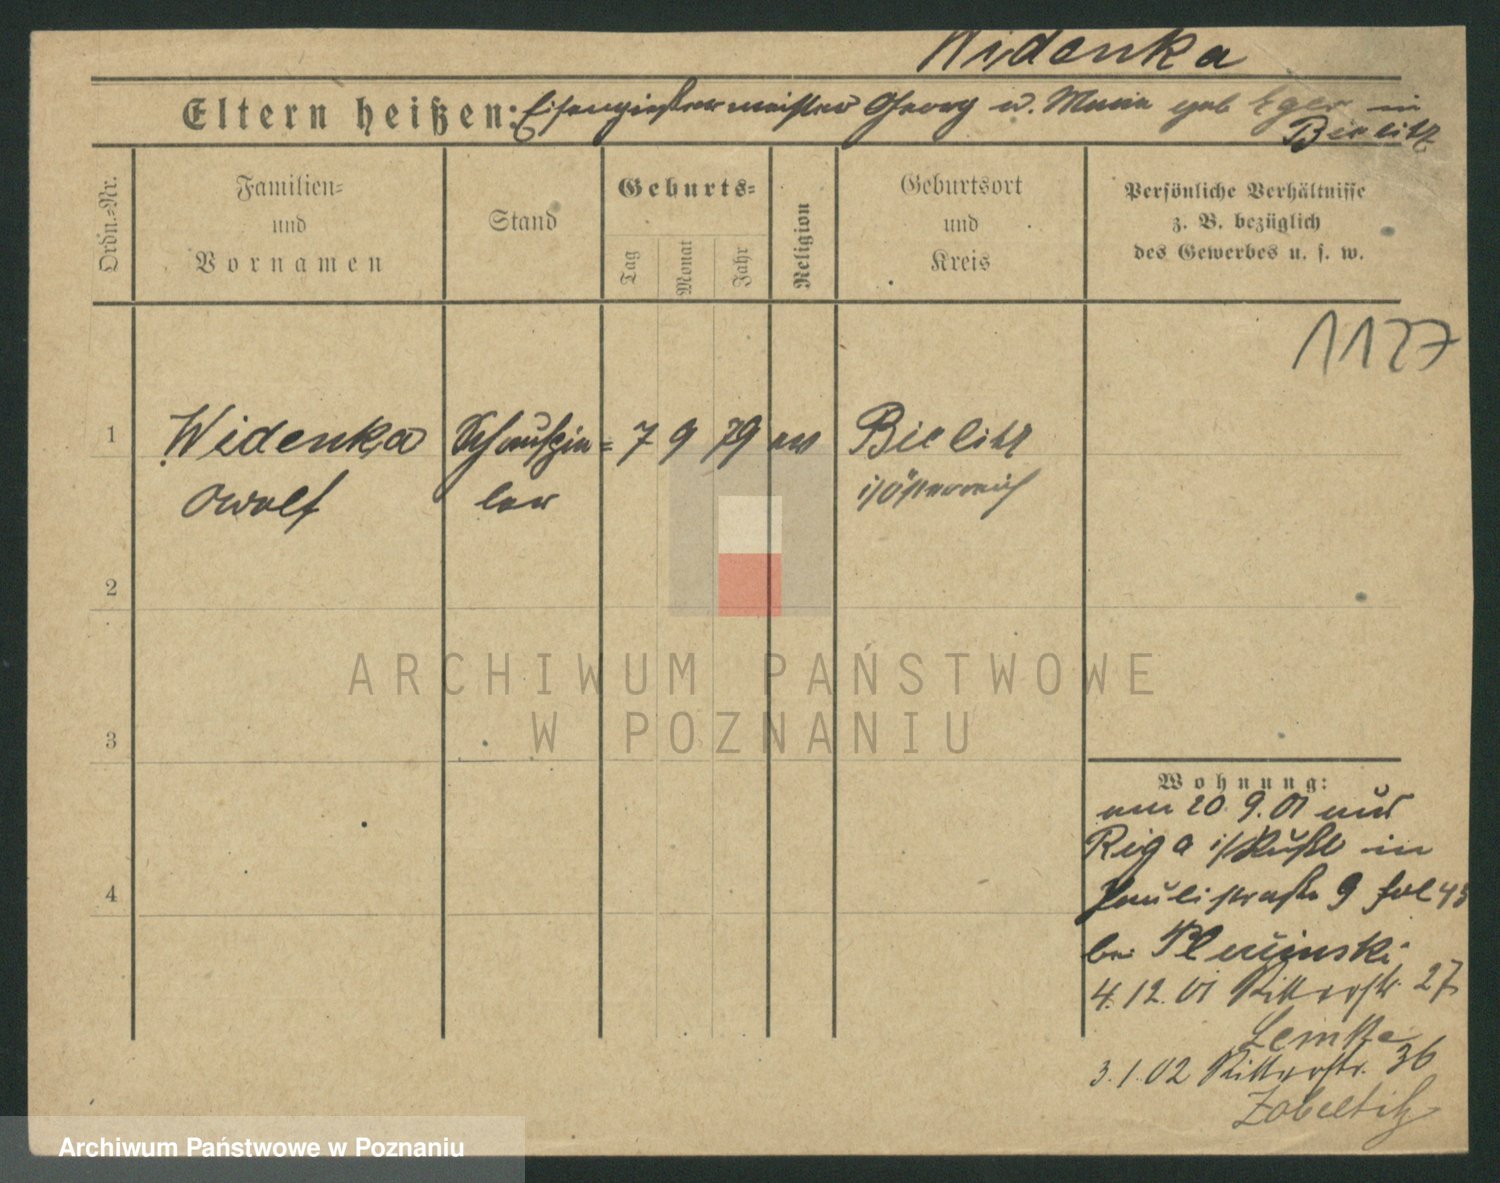 Widenka
Eltern heißen: Eisengießermeister Georg u. Marie geb Eger in
Bielitz
Ordn.=Nr.
Familien=
und
Vornamen
Stand
Geburts=
Tag
Monat
Jahr
Religion
Geburtsort
und
Kreis
Persönliche Verhältnisse
z. B. bezüglich
des Gewerbes u. s. w.
1127
1 Widenka Schauspie= 7 9 79 ev Bielitz
ler i/Österreich
2
3
4
ARCHIWUM PAŃSTWOWE
W POZNANIU
Wohnung:
am 20.9.01 aus
Riga i/Rußl in
Paulistraße 9
bei
4.12.01 Ritterstr. 27
Lemke
3.1.02 Ritterstr. 36
Zobeltitz
Archiwum Państwowe w Poznaniu